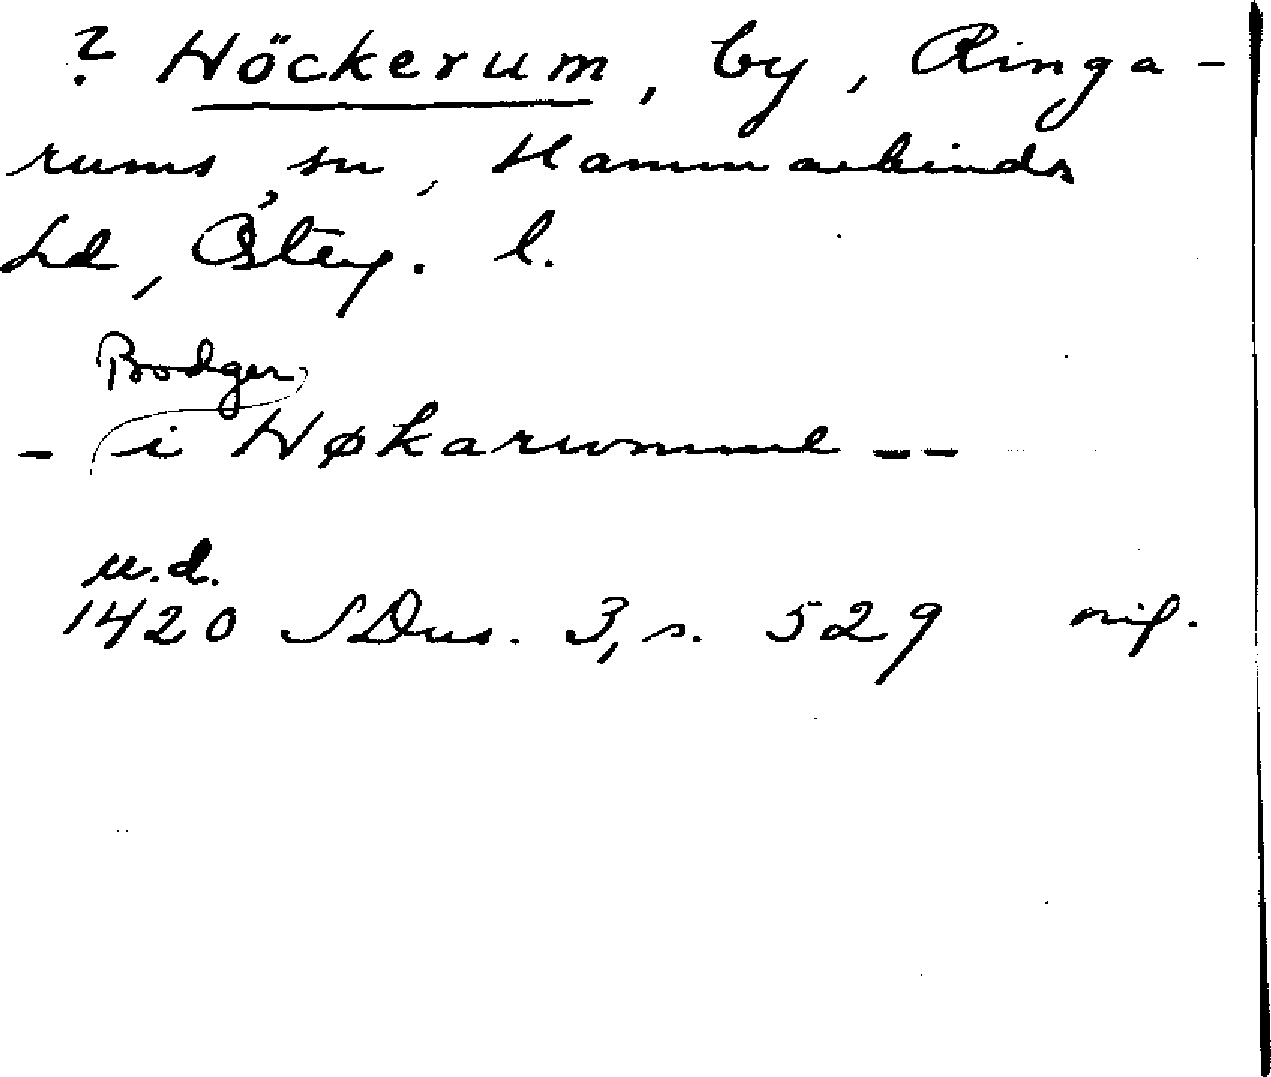 ? Höckerum, by, Ringa-
rums sn, Hammarkinds
hd, Österg. l.
Bodger
- i Høkarwmme --
u.d.
1420 SDns. 3, s. 529 orig.